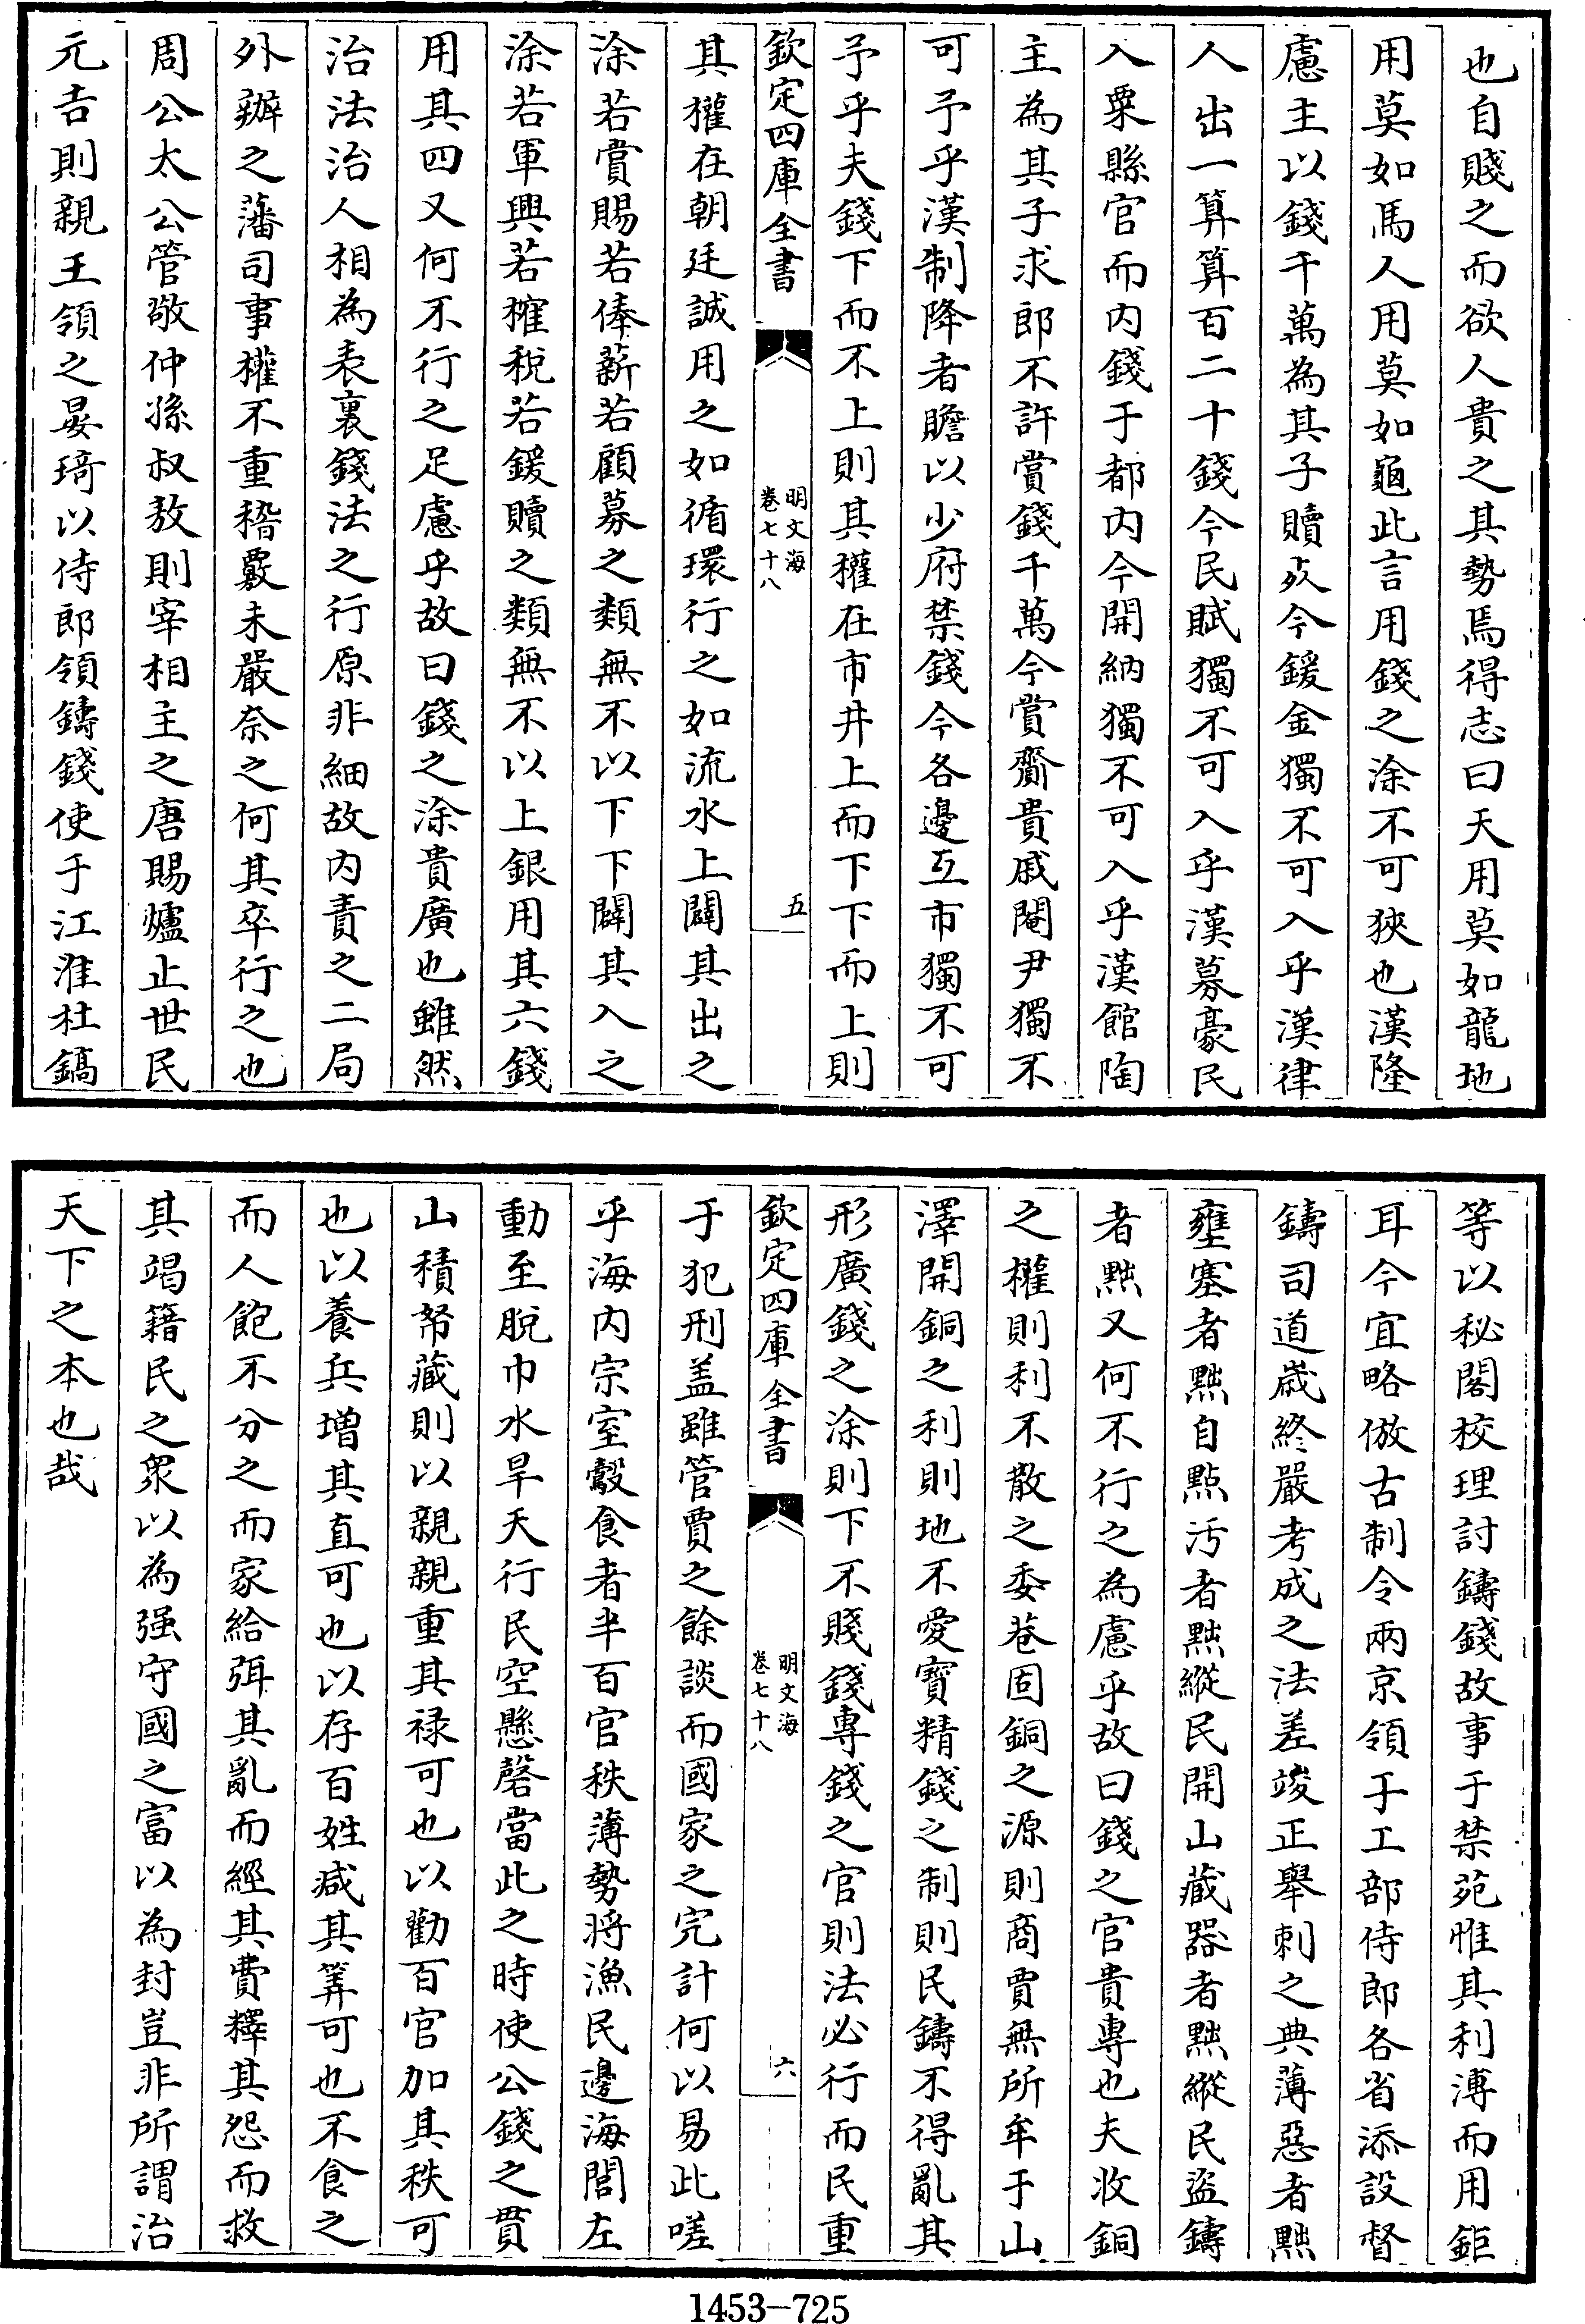 也自賤之而欲人貴之其勢焉得志曰天用莫如龍地
用莫如馬人用莫如龜此言用錢之涂不可狹也漢隆
慮主以錢千萬為其子贖死今鍰金獨不可入乎漢律
人出一算算百二十錢今民賦獨不可入乎漢募豪民
入粟縣官而内錢于都内今開納獨不可入乎漢館陶
主為其子求郎不許賞錢千萬今賞齎貴戚閹尹獨不
可予乎漢制降者贍以少府禁錢今各邊互市獨不可
予乎夫錢下而不上則其權在市井上而下下而上則
欽定四庫全書
明文海
卷七十八
五
其權在朝廷誠用之如循環行之如流水上闢其出之
涂若賞賜若俸薪若顧募之類無不以下下闢其入之
涂若軍興若搉稅若鍰贖之類無不以上銀用其六錢
用其四又何不行之足慮乎故曰錢之涂貴廣也雖然
治法治人相為表裏錢法之行原非細故内責之二局
外辦之藩司事權不重稽覈未嚴奈之何其卒行之也
周公太公管敬仲孫叔敖則宰相主之唐賜爐止世民
元吉則親王領之晏琦以侍郎領鑄錢使于江淮杜鎬
等以秘閣校理討鑄錢故事于禁苑惟其利溥而用鉅
耳今宜略倣古制令兩京領于工部侍郎各省添設督
鑄司道嵗終嚴考成之法差竣正舉刺之典薄惡者黜
壅塞者黜自點汚者黜縱民開山藏器者黜縱民盜鑄
者黜又何不行之為慮乎故曰錢之官貴專也夫收銅
之權則利不散之委巷固銅之源則商賈無所牟于山
澤開銅之利則地不愛寶精錢之制則民鑄不得亂其
形廣錢之涂則下不賤錢專錢之官則法必行而民重
欽定四庫全書
明文海
卷七十八
六
于犯刑盖雖管賈之餘談而國家之完計何以易此嗟
乎海内宗室縠食者半百官秩薄勢將漁民邊海閭左
動至脫巾水旱天行民空懸磬當此之時使公錢之貫
山積帑藏則以親親重其禄可也以勸百官加其秩可
也以養兵增其直可也以存百姓减其筭可也不食之
而人飽不分之而家給弭其亂而經其費釋其怨而救
其竭籍民之衆以為强守國之富以為封豈非所謂治
天下之本也哉
1453—725